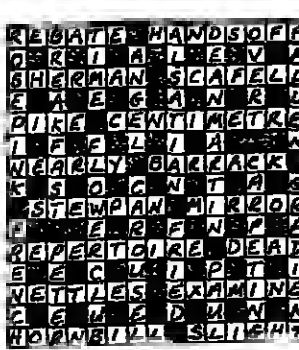 REBATE HANDSOFF
O R I A L E V
SHERMAN SCAFELL
E A E G A N R
PIKE CENTIMETRE
I F F L I A N
NEARLY BARRACK
K S O C N T A E
STEWPAN MIRROR
F E R F N P E
REPERTOIRE DEAT
E E C U I P T I
NETTLES EXAMINE
C E U E D U N N
HORNBILL SLIGHT